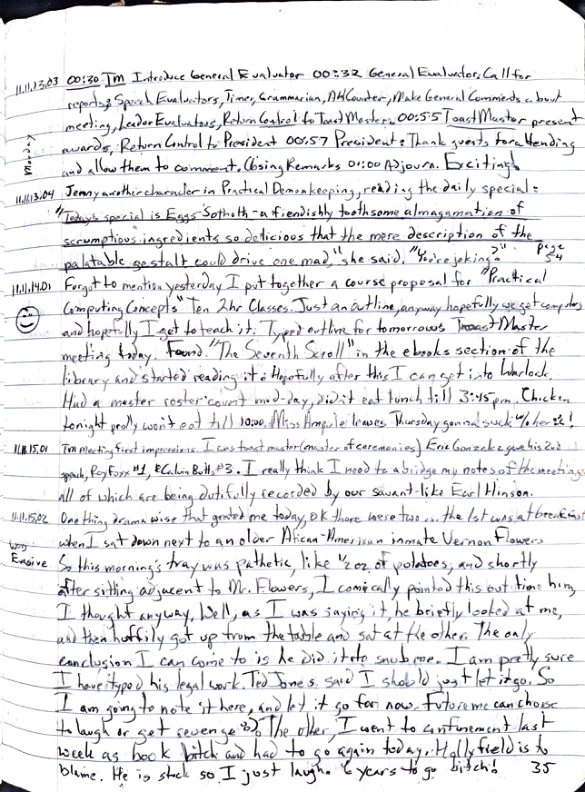 11.11.13.03 00:30 TM Introduce General Evaluator 00:32 General Evaluator, Call for
reports; Speech Evaluators, Timer, Grammarian, Ah Counter, Make General Comments about
meeting, Leader Evaluators, Return Control to ToastMaster. 00:55 ToastMaster present
Monday
awards, Return Control to President 00:57 President: Thank guests for attending
and allow them to comment. Closing Remarks 01:00 Adjourn. Exciting!
11.11.13.04 Jenny another character in Practical Demonkeeping, reading the daily special:
"Today's special is Eggs-Sothoth - a fiendishly toothsome almagamation of
scrumptious ingredients so delicious that the mere description of the
palatable gestalt could drive one mad," she said. "You're joking?" Page 54
11.11.14.01 Forgot to mention yesterday I put together a course proposal for "Practical
Computing Concepts" Ten 2hr Classes. Just an outline, anyway hopefully we get computers
and hopefully I get to teach it. Typed outline for tomorrows ToastMaster
meeting today. Found "The Seventh Scroll" in the ebooks section of the
library and started reading it. Hopefully after this I can get into Warlock.
Had a master roster count mid-day, did it eat lunch till 3:45pm. Chicken
tonight prolly won't eat till 10:00. Miss Ampule leaves Thursday gonna suck w/o her
11.11.15.01 Tm meeting first impressions. I was toast master (master of ceremonies) Eric Gonzalez gave his 2nd
speech, Roy Foxx #1, & Calvin Butts #3. I really think I need to abridge my notes of the meetings
all of which are being dutifully recorded by our savant-like Earl Hinson.
11.11.15.02 One thing drama wise that grated me today, ok there were two... the 1st was at breakfast
when I sat down next to an older African-American inmate Vernon Flowers
So this morning's tray was pathetic, like 1/2 oz of potatoes, and shortly
after sitting adjacent to Mr. Flowers, I comically pointed this out to him,
I thought anyway. Well, as I was saying it, he briefly looked at me,
and then huffily got up from the table and sat at the other. The only
conclusion I can come to is he did it to snub me. I am pretty sure
I have typed his legal work. Ted Jones said I should just let it go. So
I am going to note it here, and let it go for now. Future me can choose
to laugh or get revenge. The other, I went to confinement last
week as book bitch and had to go again today. Hollyfield is to
blame. He is stuck so I just laugh. 6 years to go bitch! 35